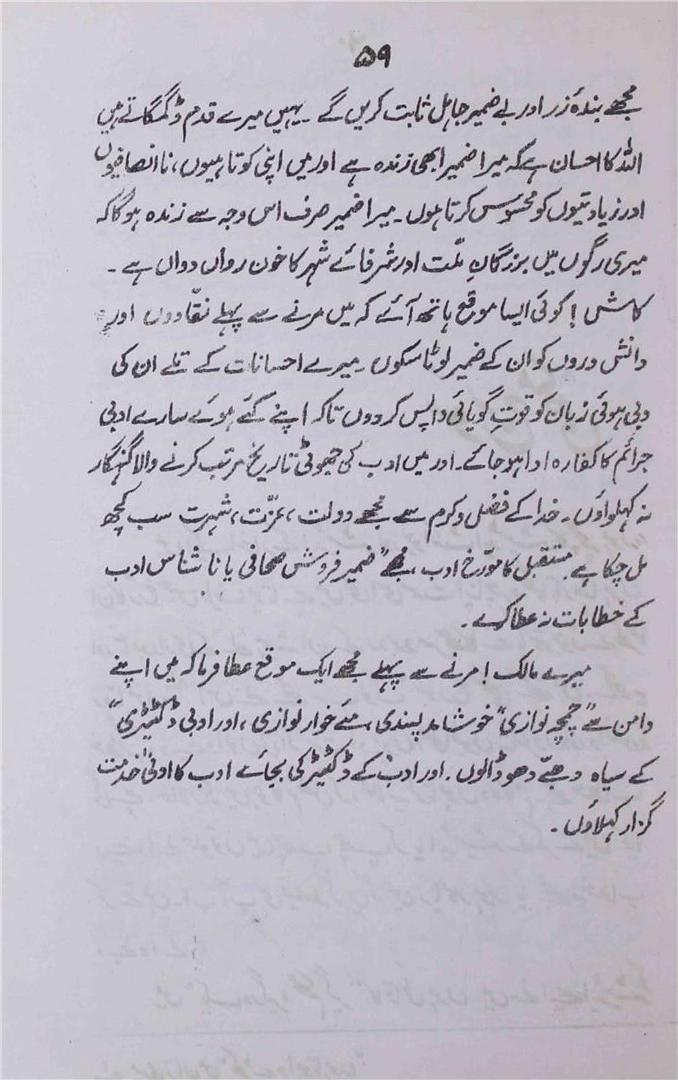 ۵۹
مجھے بندۂ زر اور بے ضمیر جاہل ثابت کریں گے ۔ یہیں میرے قدم ڈگمگاتے ہیں
اللہ کا احسان ہے کہ میرا ضمیر ابھی زندہ ہے اور میں اپنی کوتاہیوں، ناانصافیوں
اور زیادتیوں کو محسوس کرتا ہوں ۔ میرا ضمیر صرف اس وجہ سے زندہ ہوگا کہ
میری رگوں میں بزرگانِ ملّت اور شرفائے شہر کا خون رواں دواں ہے ۔
کاش ! کوئی ایسا موقع ہاتھ آئے کہ میں مرنے سے پہلے نقّادوں اور
دانش وروں کو ان کے ضمیر لوٹا سکوں ۔ میرے احسانات کے تلے ان کی
دبی ہوئی زبان کو قوتِ گویائی واپس کردوں تاکہ اپنے کئے ہوئے سارے ادبی
جرائم کا کفارہ ادا ہو جائے ۔ اور میں ادب کی جھوٹی تاریخ مرتب کرنے والا گنہگار
نہ کہلاؤں ۔ خدا کے فضل و کرم سے مجھے دولت ، عزّت ، شہرت سب کچھ
مل چکا ہے مستقبل کا مورّخ ادب مجھے "ضمیر فروش صحافی یا ناشناس ادب
کے خطابات نہ عطا کرے ۔
میرے مالک ! مرنے سے پہلے مجھے ایک موقع عطا فرما کہ میں اپنے
دامن سے "چمچہ نوازی" خوشامد پسندی ، مئے خوار نوازی ، اور ادبی ڈکٹیٹری"
کے سیاہ دھبّے دھو ڈالوں ۔ اور ادب کے ڈکٹیٹر کی بجائے ادب کا ادنیٰ خدمت
گزار کہلاؤں ۔